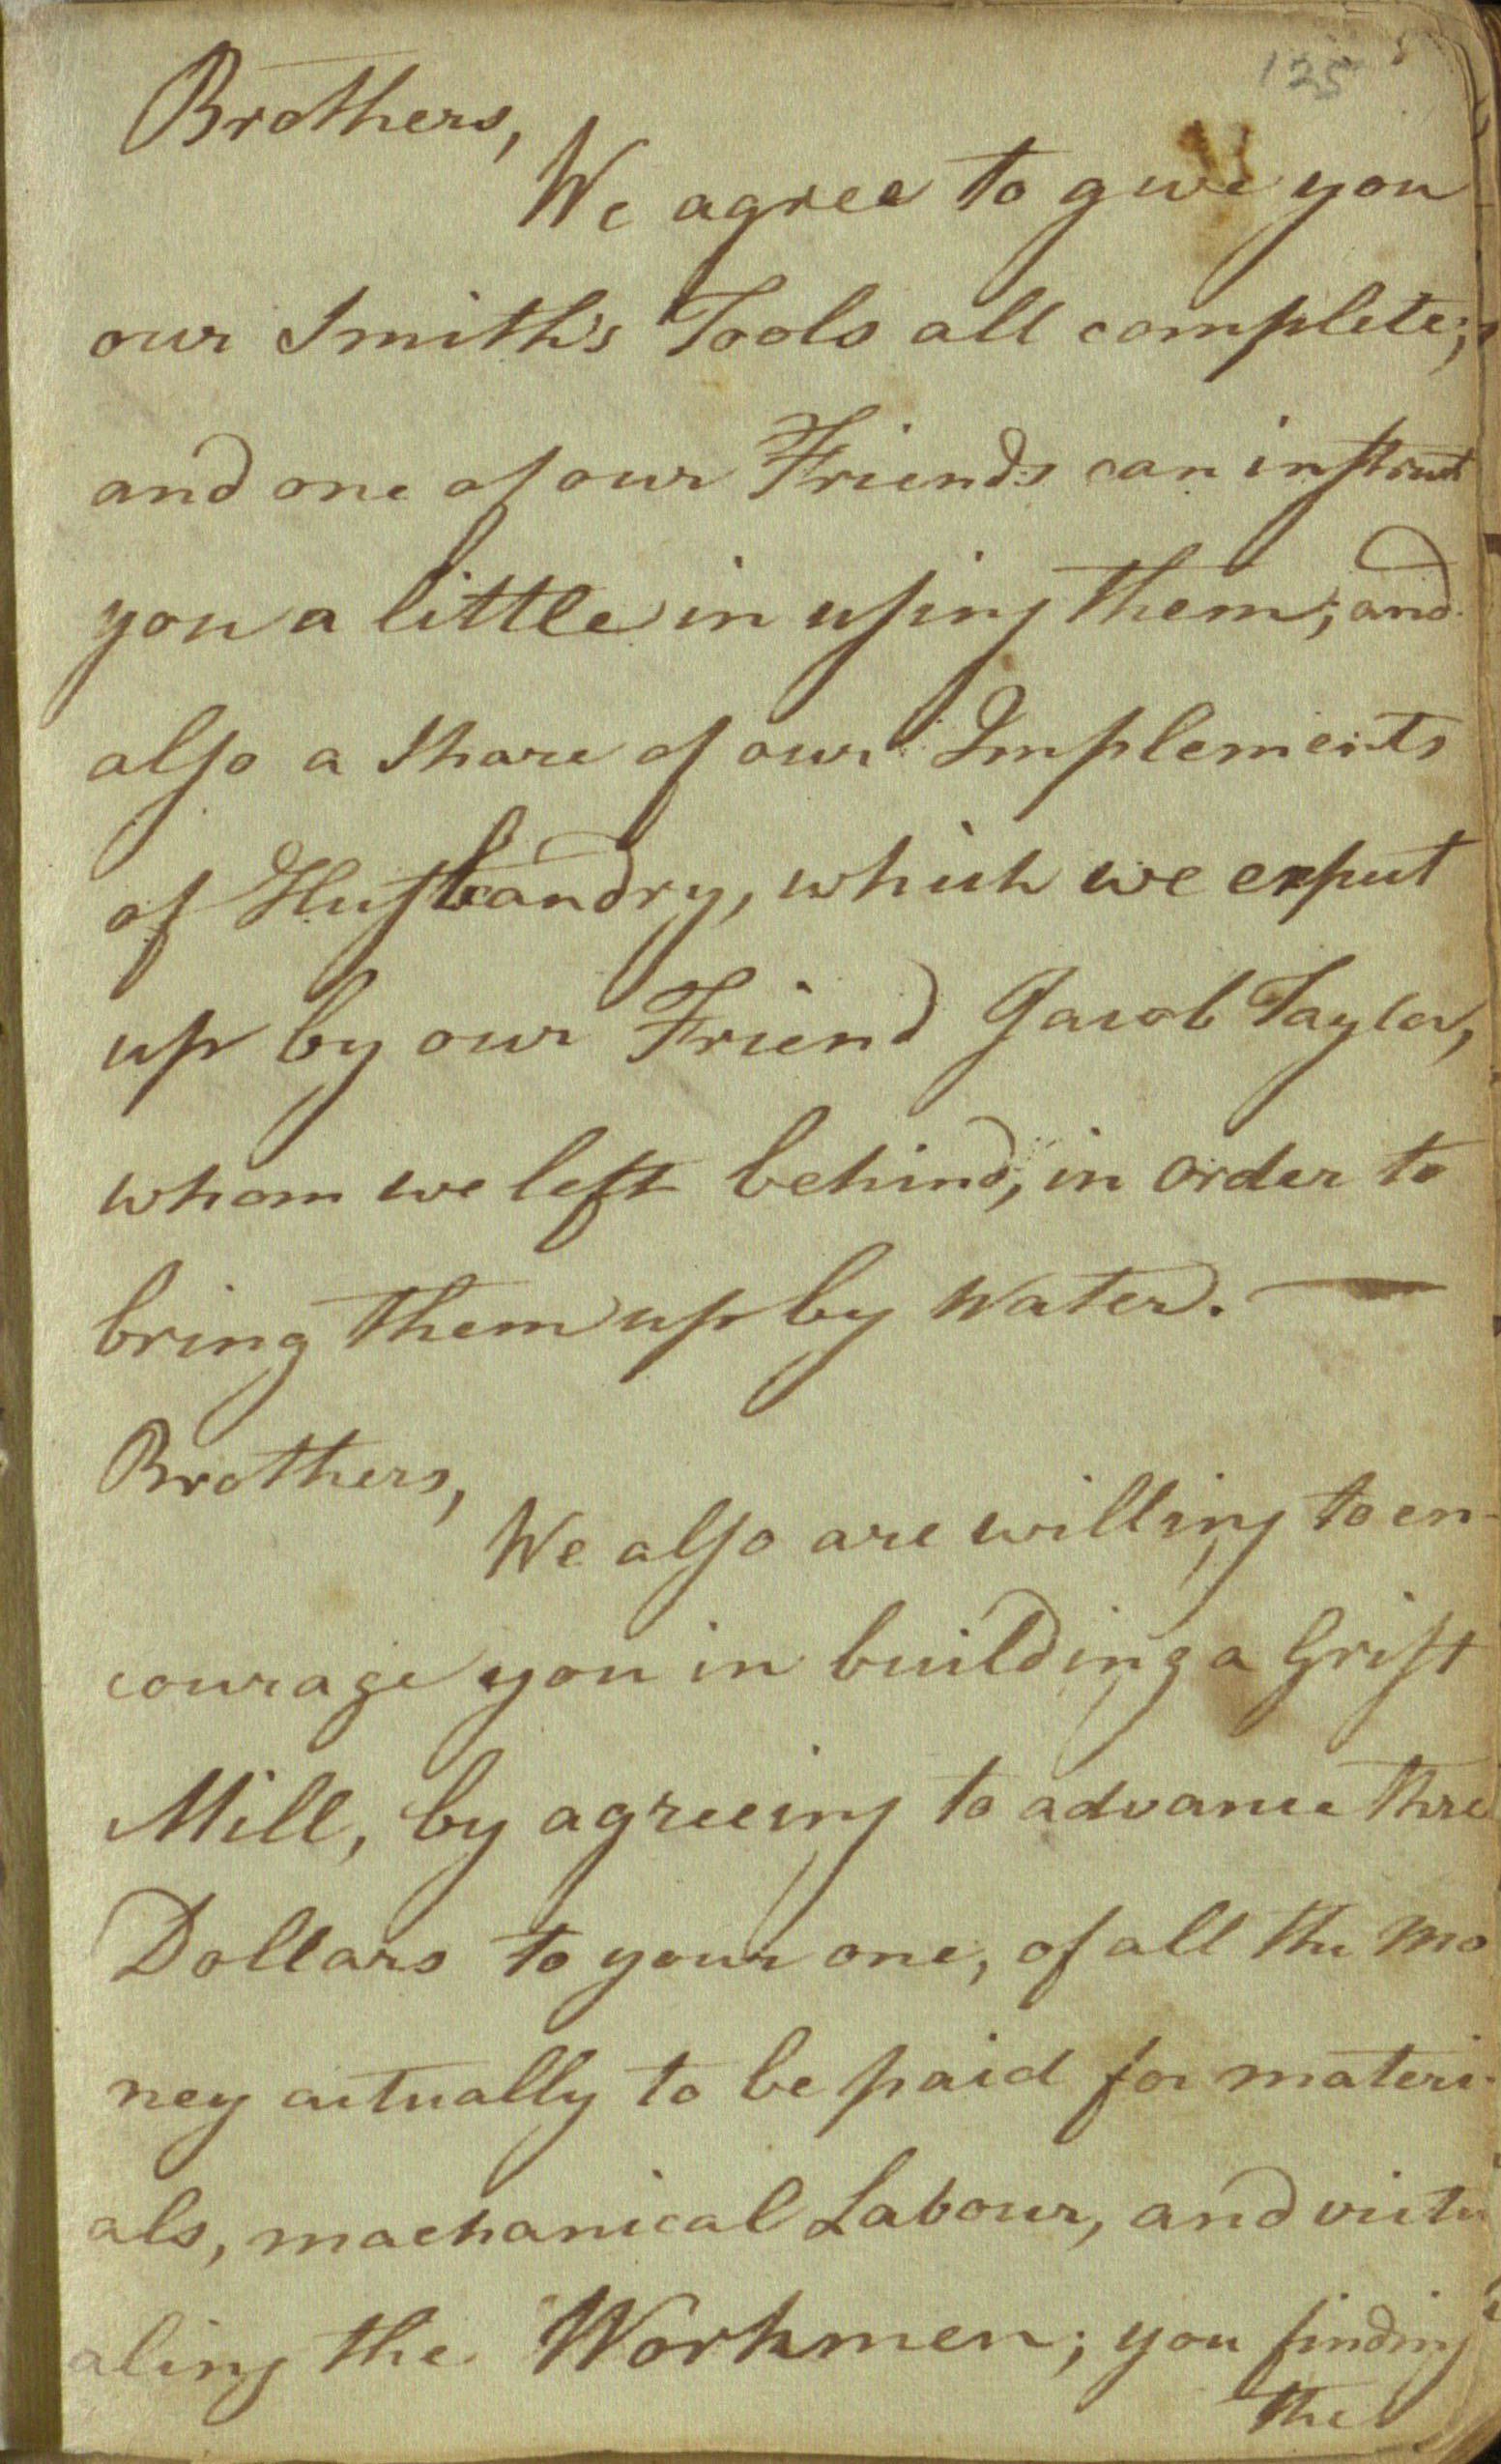 125
Brothers,
We agree to give you
our Smith's Tools all complete;
and one of our Friends can instruct
you a little in using them; and
also a Share of our Implements
of Husbandry, which we expect
up by our Friend Jacob Taylor,
whom we left behind, in order to
bring them up by Water. —
Brothers,
We also are willing to en-
courage you in building a Grist
Mill, by agreeing to advance three
Dollars to your one, of all the Mo
ney actually to be paid for materi-
als, machanical Labour, and victu
aling the Workmen; you finding
the